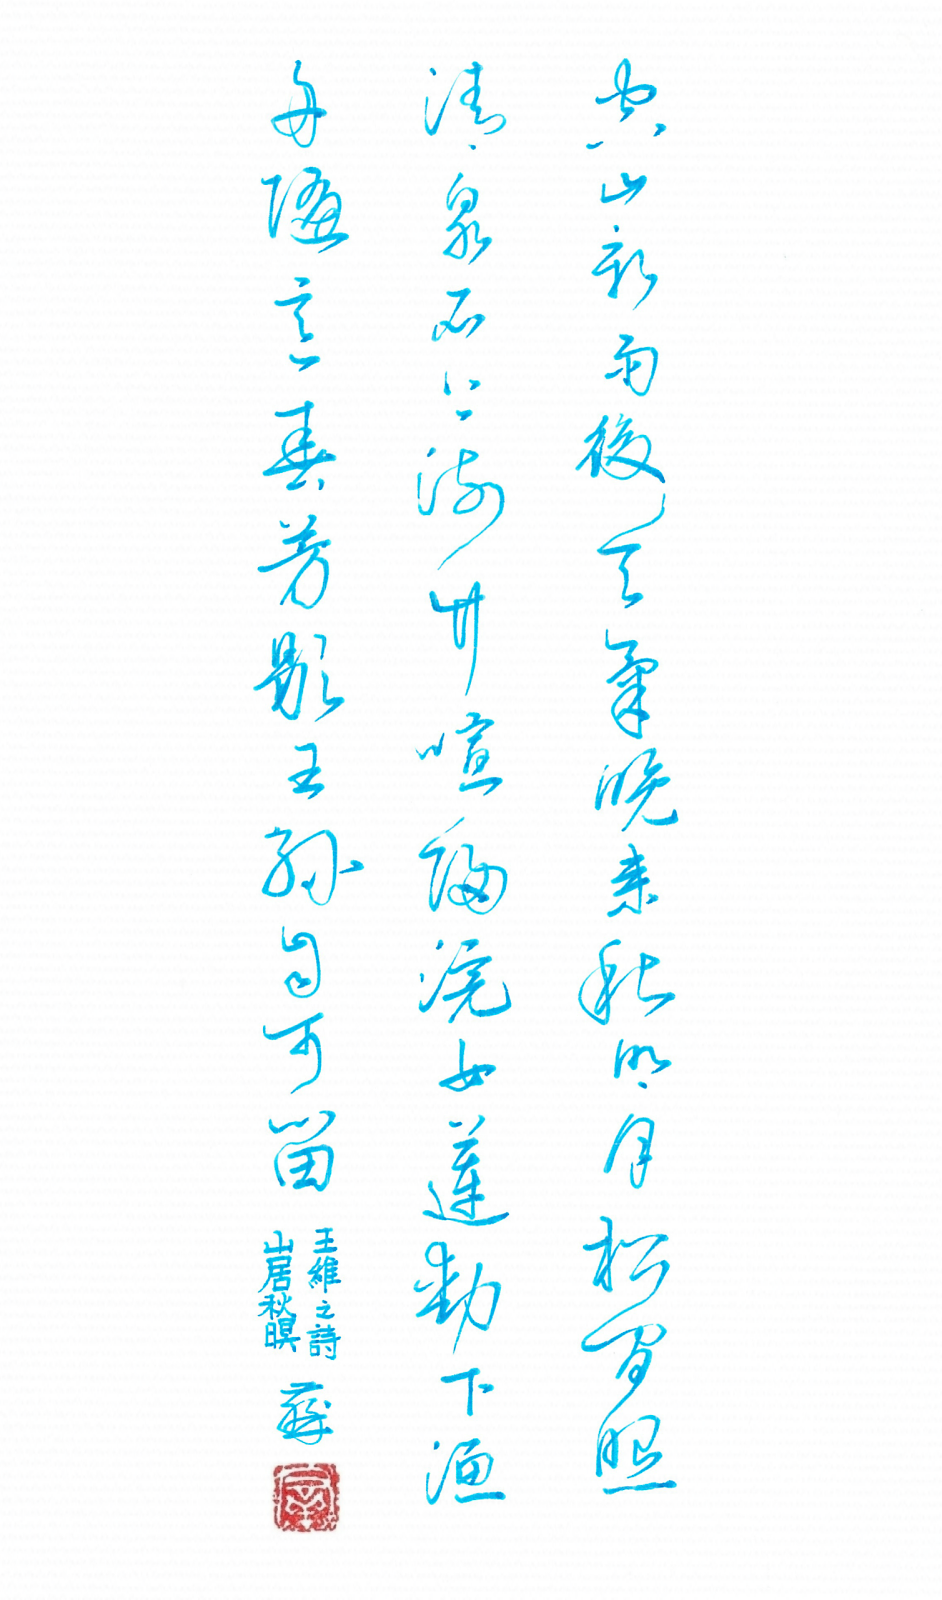 空山新雨後天氣晚來秋明月松間照
清泉石上流竹喧歸浣女蓮動下漁
舟隨意春芳歇王孫自可留
王維之詩
山居秋暝